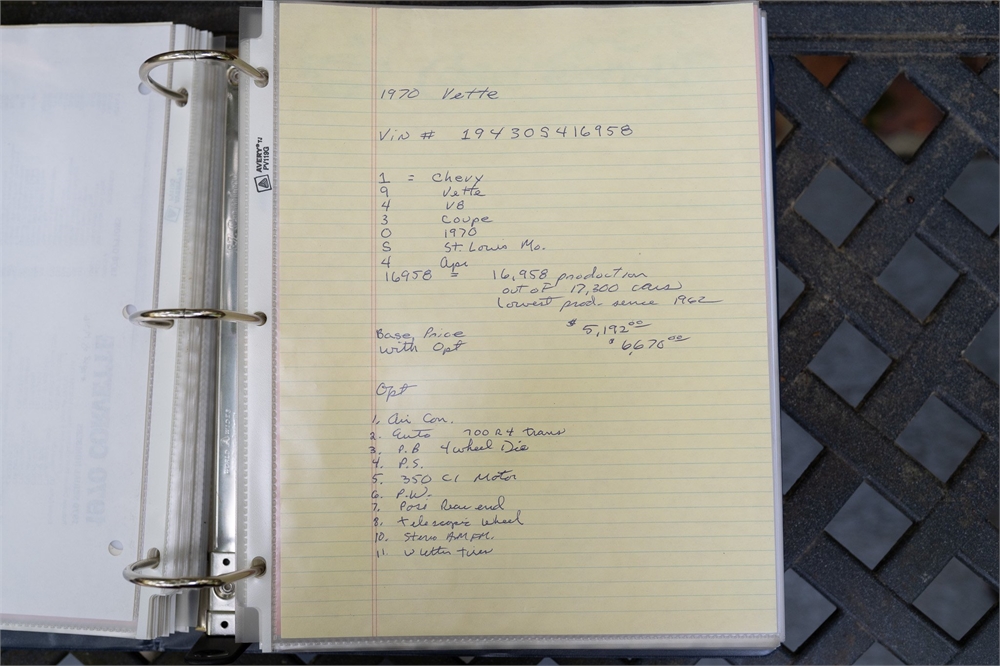 1970 Vette
Vin # 194370S416958
1 = Chevy
9 Vette
4 V8
3 Coupe
0 1970
S St. Louis Mo.
4 Apr
16958 = 16,958 production
out of 17,300 cars
lowest prod. sence 1962
Base Price $5,192.00
with Opt $6,670.00
Opt
1. Air Con.
2. Auto 700 R4 trans
3. P.B 4 wheel Disc
4. P.S.
5. 350 CI Motor
6. P.W.
7. Posi Rear end
8. telescopic wheel
10. Stereo A.M.F.M.
11. W letter tires
AVERY® 12
PV119G